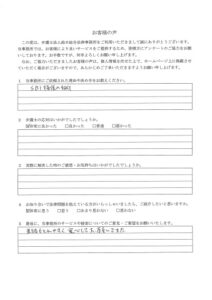 お客様の声
この度は、弁護士法人鈴木総合法律事務所をご利用いただきまして誠にありがとうございます。
当事務所では、お客様により良いサービスをご提供するため、皆様方にアンケートのご協力をお願い
しております。お手数ですが、ご協力をよろしくお願い申し上げます。
なお、ご記入いただきましたお客様の声は、個人情報を伏せた上で、ホームページ上に掲載させ
ていただく場合がございますので、あらかじめご了承いただけますようお願い申し上げます。
1 当事務所にご依頼された理由や決め手をお教えください。
2 弁護士の応対はいかがでしたでしょうか。
□非常に良かった □良かった □普通 □悪かった
3 実際に解決した時のご感想・お気持ちはいかがでしたでしょうか。
4 お知り合いで法律問題を抱えている方がいらっしゃいましたら、ご紹介したいと思いますか。
□非常に思う □思う □あまり思わない □思わない
5 最後に、当事務所のサービスや接客についてのご意見・ご要望をお願いいたします。